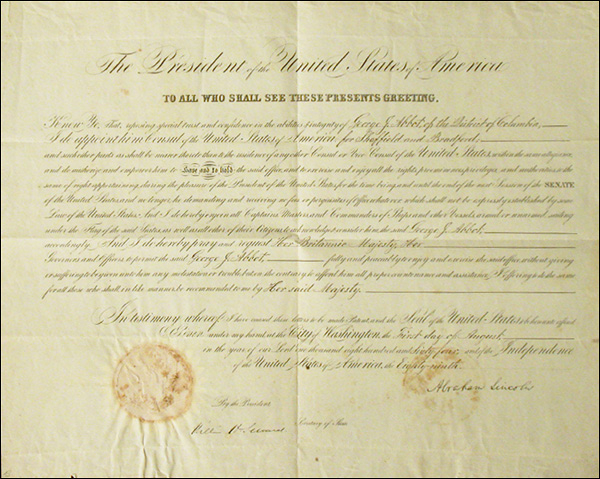 The President of the United States of America
TO ALL WHO SHALL SEE THESE PRESENTS GREETING.
Know Ye, That, reposing special trust and confidence in the abilities & integrity of George J. Abbot, of the District of Columbia,
I do appoint him Consul of the United States of America for Sheffield and Bradford,
and such other parts as shall be nearer thereto than to the residence of any other Consul or Vice Consul of the United States, within the same allegiance,
and do authorize and empower him to Have and to hold the said office, and to exercise and enjoy all the rights, preeminences, privileges, and authorities, to the
same of right appertaining, during the pleasure of the President of the United States for the time being, and until the end of the next Session of the SENATE
of the United States, and no longer, he demanding and receiving no fees or perquisites of office whatever which shall not be expressly established by some
Law of the United States. And I do hereby enjoin all Captains, Masters, and Commanders of Ships and other Vessels, armed or unarmed, sailing
under the Flag of the said States, as well as all other of their Citizens, to acknowledge & consider him the said George J. Abbot
accordingly. And I do hereby pray and request Her Britannic Majesty, Her
Governors and Officers to permit the said George J. Abbot, fully and peaceably to enjoy and exercise the said office without giving
or suffering to be given unto him any molestation or trouble but on the contrary to afford him all proper countenance and assistance; I offering to do the same
for all those who shall in like manner be recommended to me by Her said Majesty.
In testimony whereof I have caused these letters to be made Patent, and the Seal of the United States to be hereunto affixed
Given under my hand at the City of Washington, the First day of August,
in the year of our Lord one thousand eight hundred and sixty four, and of the Independence
of the United States of America, the Eighty ninth.
Abraham Lincoln
By the President,
William H. Seward Secretary of State